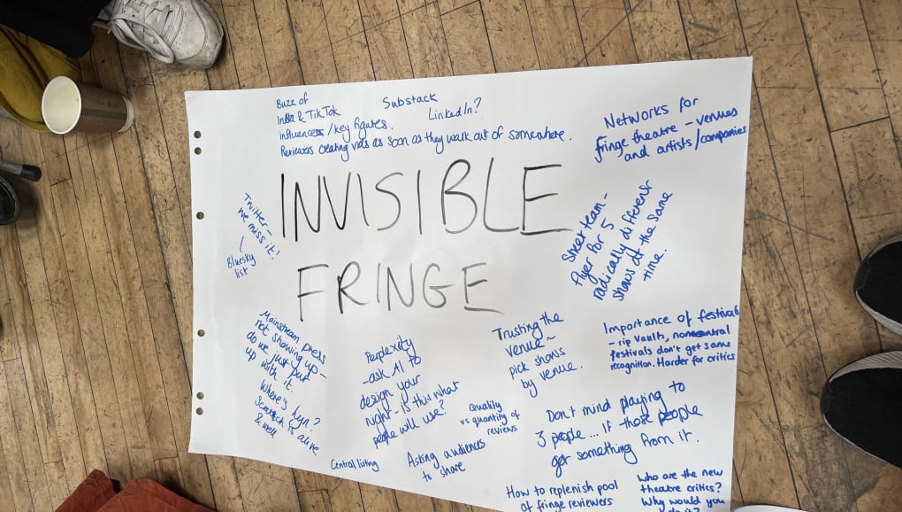 Buzz of
Insta & TikTok
influencers/key figures.
Reviewers creating vids as soon as they walk out of somewhere.
Substack
LinkedIn?
Networks for
fringe theatre - venues
and artists/companies
INVISIBLE
FRINGE
Twitter -
we miss it!
Bluesky
list
Street team -
flyer for 5
radically different
shows at the same
time.
Mainstream press
not showing up -
do we just put
up with it.
Where's Lyn?
Scottish is alive
& well
Perplexity
- ask AI to
design your
night - is this what
people will use?
Trusting the
venue ~
pick shows
by venue.
Importance of festivals
- rip Vaults, noncentral
festivals don't get same
recognition. Harder for critics
Quality
vs quantity of
reviews
Don't mind playing to
3 people... if those people
get something from it.
Central listing
Asking audiences
to share
How to replenish pool
of fringe reviewers
Who are the new
theatre critics?
Why would you
do it?